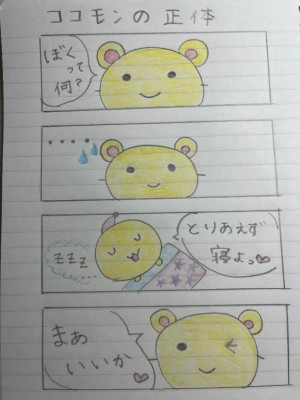 ココモンの正体
ぼく
って
何?
・・・・
とりあえず
寝よっ♡
ZZZ...
まあ
いいか
♡